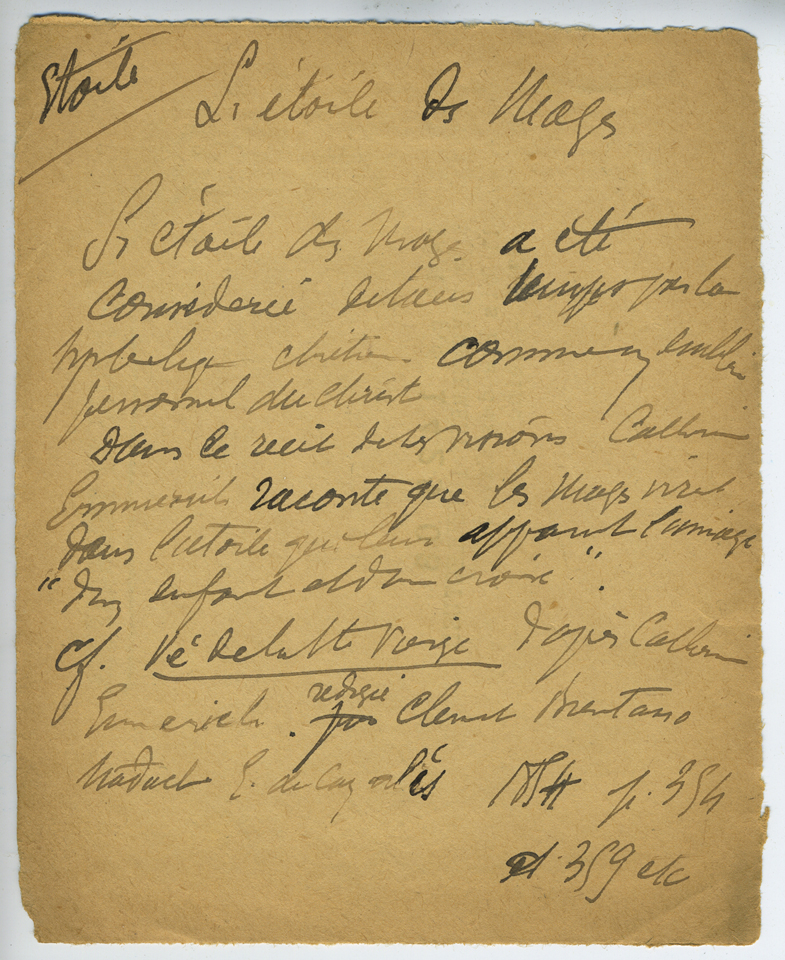 Etoile
L'étoile des Mages
L'étoile des Mages a été
considerée de tous temps par la
chrétien comme un emblème
personnel du Christ
Dans le récit de ses visions Catherine
Emmerich raconte que les Mages virent
dans l'étoile qui leur apparut l'image
"d'un enfant et d'une croix".
cf. Vie de la Ste Vierge d'après Catherine
Emmerich. redigée par Clement Brentano
traduct E. de Cazalès 1854 p. 354
et 359 etc